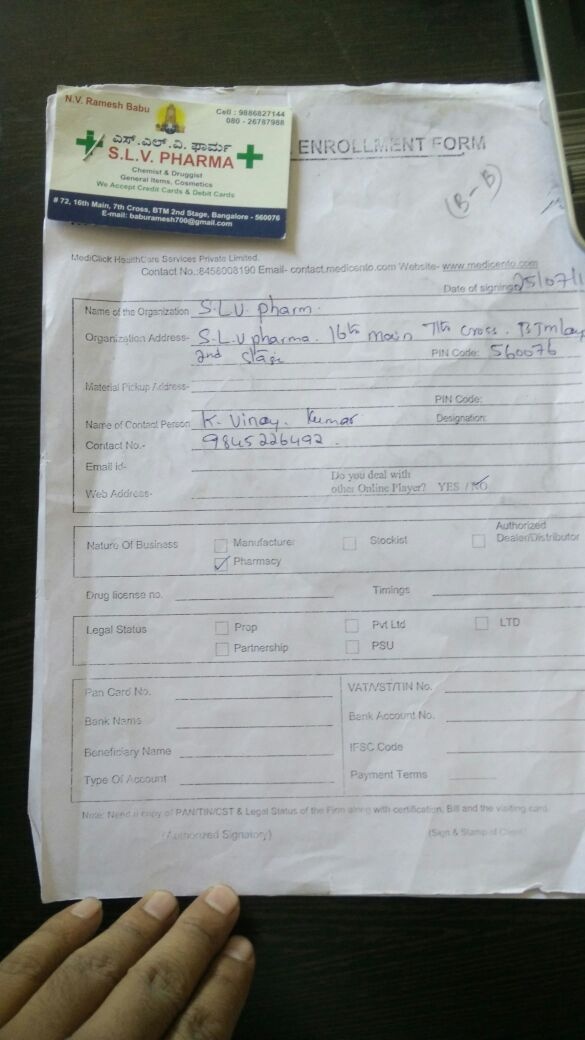 N.V. Ramesh Babu
Cell : 9886827144
080 - 26787988
ಎಸ್.ಎಲ್.ವಿ. ಫಾರ್ಮ
S.L.V. PHARMA
Chemist & Druggist
General Items, Cosmetics
We Accept Credit Cards & Debit Cards
# 72, 16th Main, 7th Cross, BTM 2nd Stage, Bangalore - 560076
E-mail: baburamesh700@gmail.com
ENROLLMENT FORM
(B-B)
MediClick HealthCare Services Private Limited.
Contact No.:8458008190 Email- contact.medicento.com Website- www.medicento.com
Date of signing: 25/07/1
Name of the Organization S.L.V. pharm.
Organization Address- S.L.V pharma. 16th main 7th cross.
2nd stage PIN Code: 560076
Material Pickup Address-
PIN Code:
Name of Contact Person K. Vinay. Kumar Designation:
Contact No.- 9845226492.
Email Id-
Do you deal with
Web Address- other Online Player? YES / NO
Nature Of Business Manufacturer Stockist Authorized Dealer/Distributor
Pharmacy
Drug license no. Timings
Legal Status Prop Pvt Ltd LTD
Partnership PSU
Pan Card No. VAT/VST/TIN No.
Bank Name Bank Account No.
Beneficiary Name IFSC Code
Type Of Account Payment Terms
Note: Need a copy of PAN/TIN/CST & Legal Status of the Firm along with certification, Bill and the visiting card.
(Authorized Signatory) (Sign & Stamp of Client)